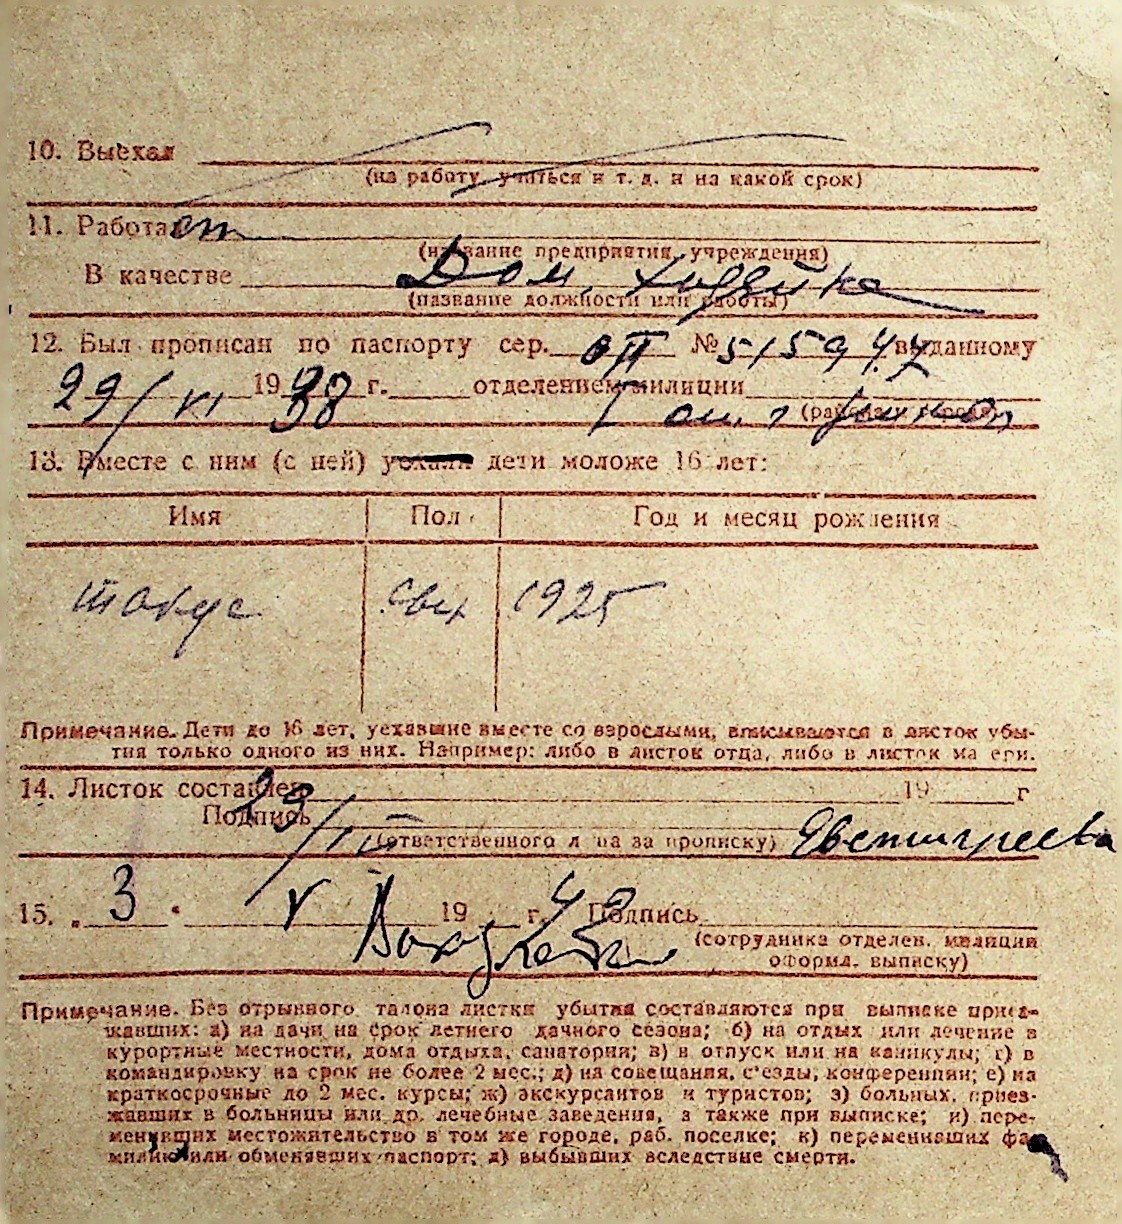 10. Выехал
(на работу, учиться и т. д. и на какой срок)
11. Работает
(название предприятия, учреждения)
В качестве Дом. хозяйка
(название должности или работы)
12. Был прописан по паспорту сер. № 515947 выданному
29/VI 1938 г. отделением милиции
(района, города)
13. Вместе с ним (с ней) уехали дети моложе 16 лет:
Имя Пол Год и месяц рождения
1925
Примечание. Дети до 16 лет, уехавшие вместе со взрослыми, вписываются в листок убы-
тия только одного из них. Например: либо в листок отца, либо в листок матери.
14. Листок составлен 19 г
Подпись
(ответственного лица за прописку)
15. „3" V 19 г. 42 Подпись
(сотрудника отделен. милиции
оформл. выписку)
Примечание. Без отрывного талона листки убытия составляются при выписке приез-
жавших: а) на дачи на срок летнего дачного сезона; б) на отдых или лечение в
курортные местности, дома отдыха, санатории; в) в отпуск или на каникулы; г) в
командировку на срок не более 2 мес.; д) на совещания, с'езды, конференции; е) на
краткосрочные до 2 мес. курсы; ж) экскурсантов и туристов; з) больных, приез-
жавших в больницы или др. лечебные заведения, а также при выписке; и) пере-
менивших местожительство в том же городе, раб. поселке; к) переменивших фа-
милию или обменявших паспорт; л) выбывших вследствие смерти.